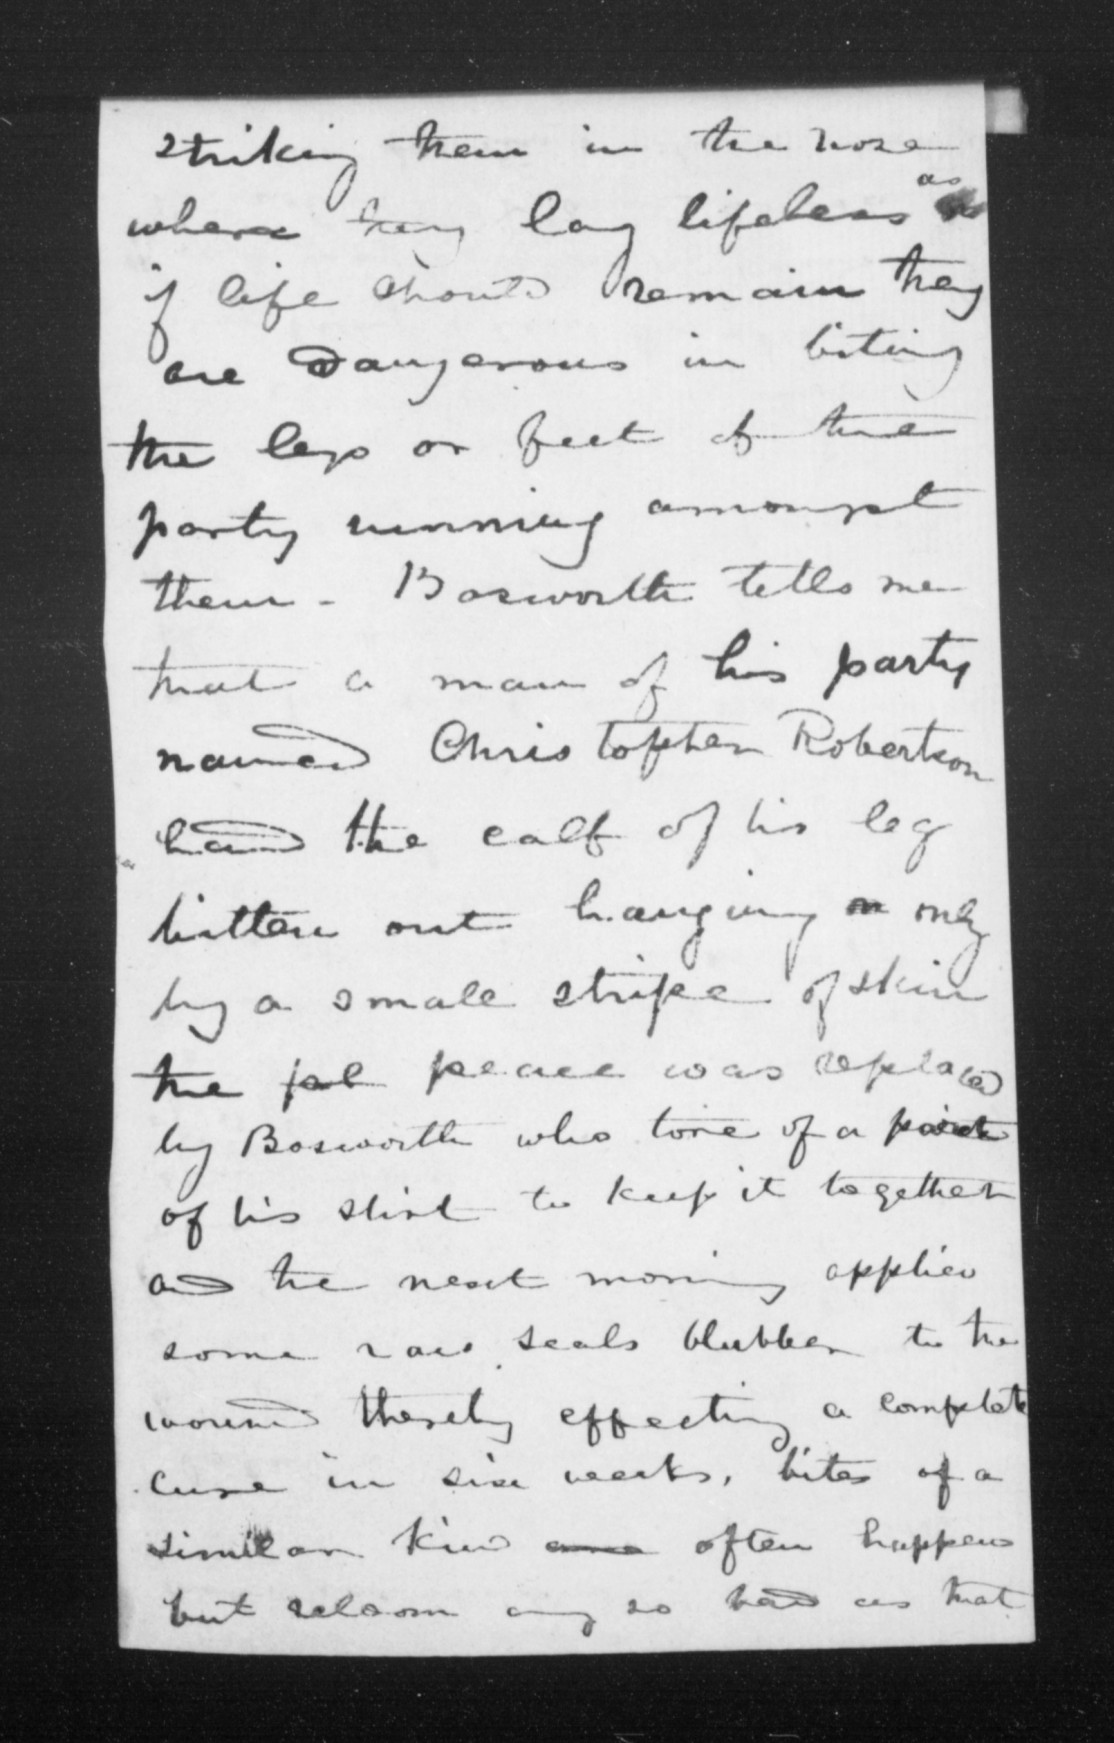 striking them in the nose
where they lay lifeless as
if life should remain they
are dangerous in biting
the legs or feet of the
party running amongst
them - Bosworth tells me
that a man of his party
named Christopher Robertson
had the calf of his leg
bitten out hanging on only
by a small stripe of skin
the pel peace was replaced
by Bosworth who tore of a
of his shirt to keep it together
and the next morning applied
some raw seals blubber to the
wound thereby effecting a complete
cure in six weeks, bites of a
similar kind are often happens
but seldom any so bad as that